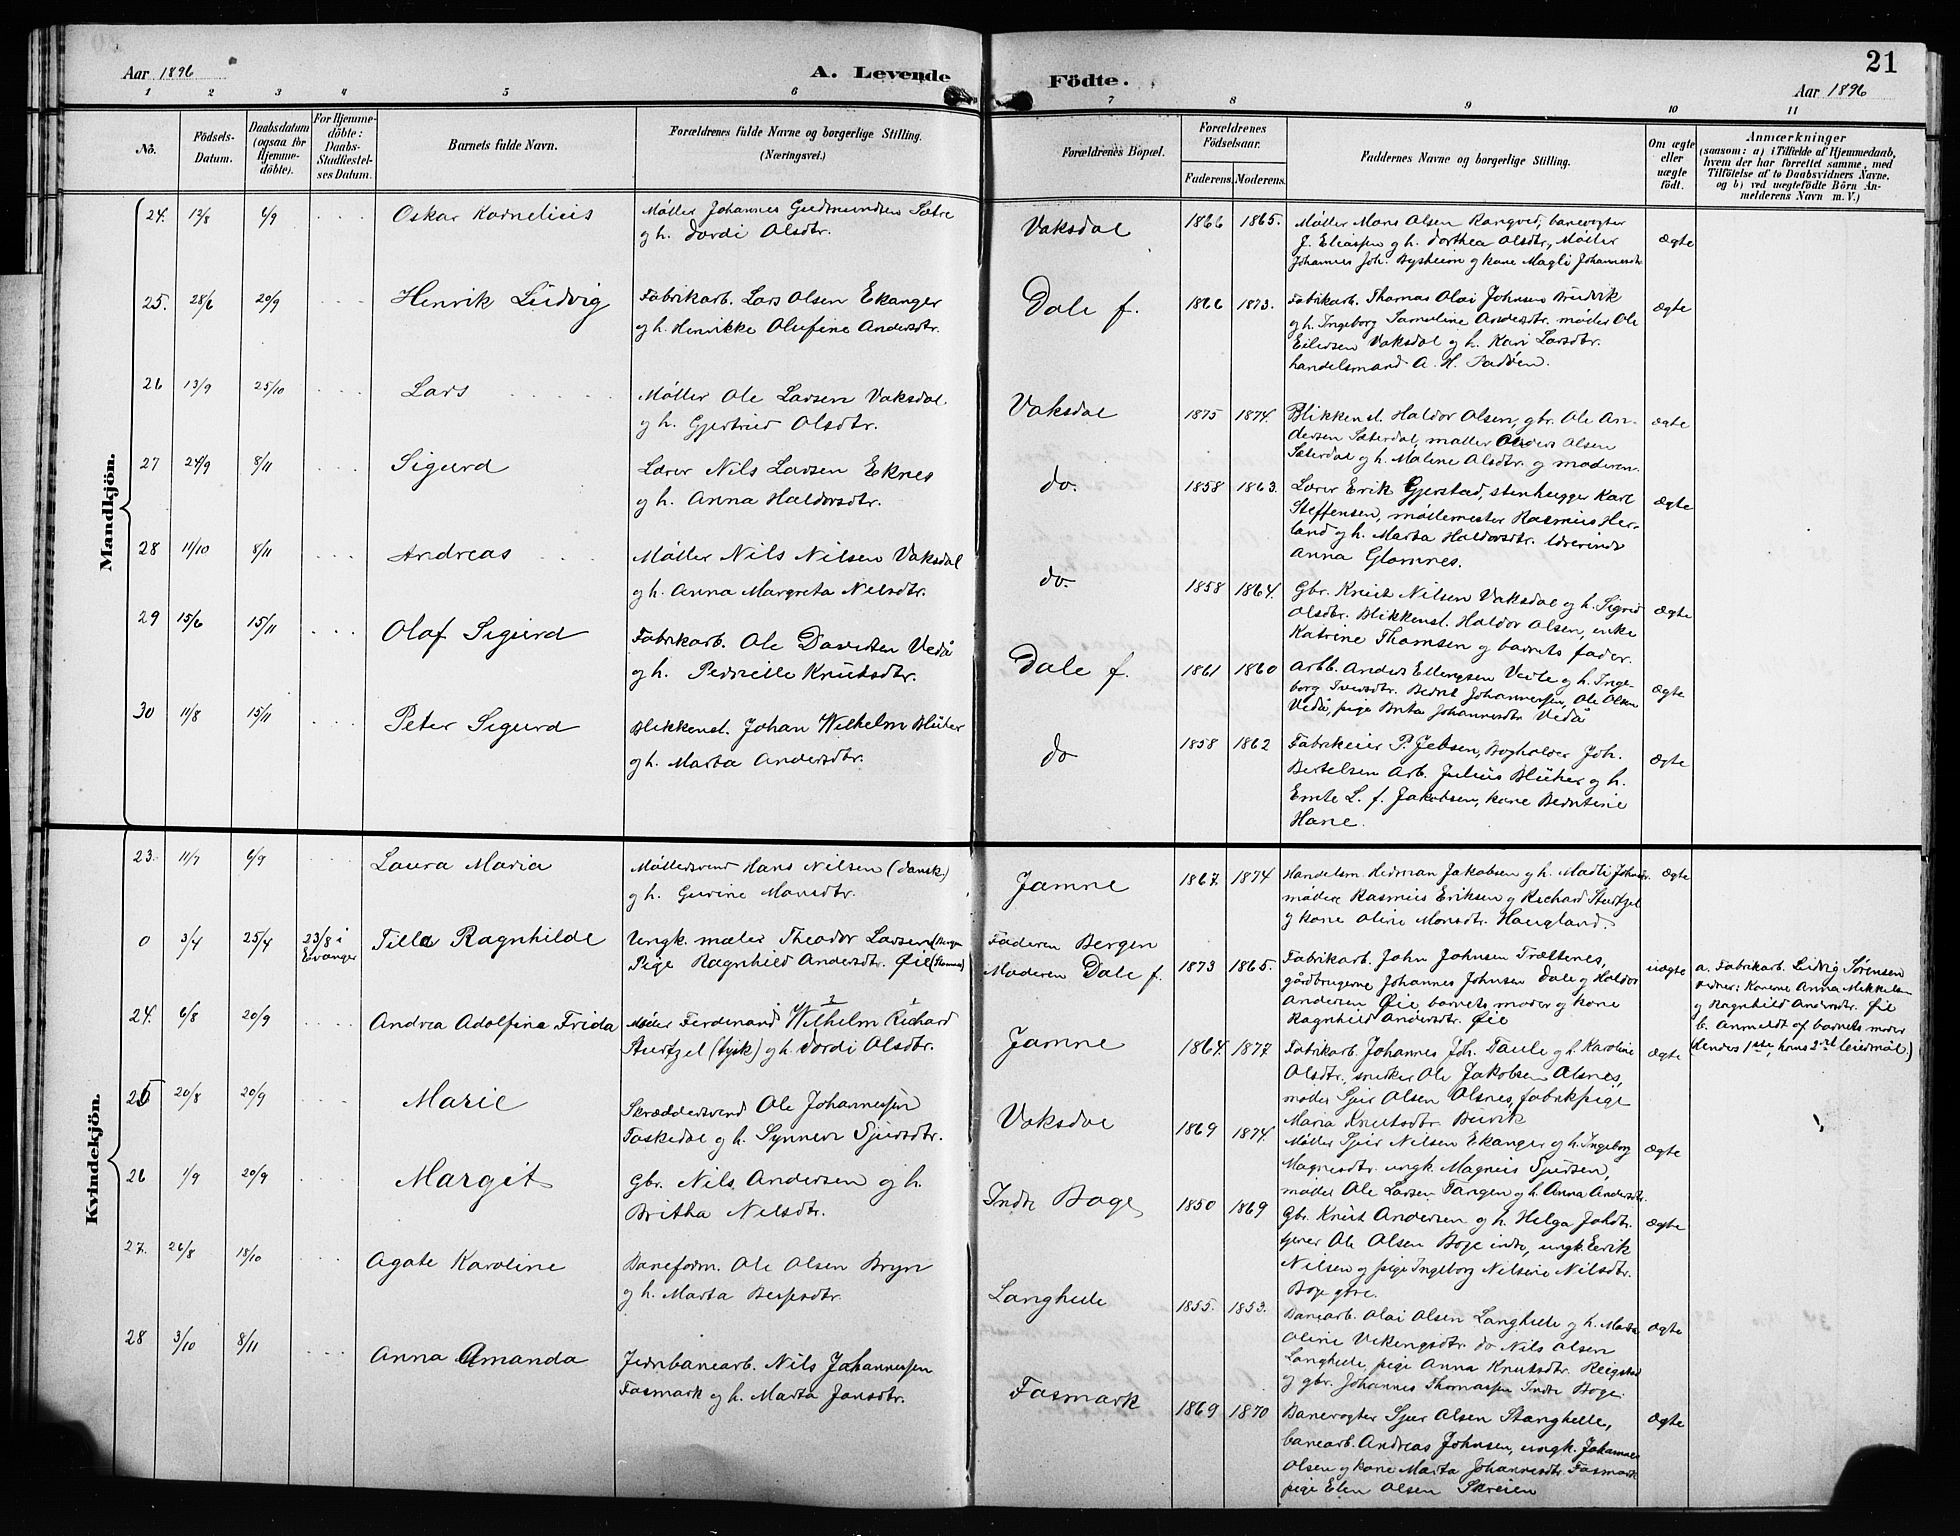 Aar 1896
A. Levende
Födte.
21
Aar 1896
1 2 3 4 5 6 7 8 9 10 11
No.
Födsels-
Datum.
Daabsdatum
(ogsaa for
Hjemme-
döbte).
For Hjemme-
döbte:
Daabs-
Stadfæstel-
ses Datum.
Barnets fulde Navn.
Forældrenes fulde Navne og borgerlige Stilling.
(Næringsvei.)
Forældrenes Bopæl.
Forældrenes
Födselsaar.
Faderens. Moderens.
Faddernes Navne og borgerlige Stilling.
Om ægte
eller
uægte
födt.
Anmærkninger
(saasom: a) i Tilfælde af Hjemmedaab,
hvem der har forrettet samme, med
Tilföielse af to Daabsvidners Navne,
og b) ved uægtefödte Börn An-
melderens Navn m. V.)
Mandkjön.
24. 12/8 6/9 Oskar Kornelius
Møller Johannes Gudmundsen Sætre
og h. Dordi Olsdtr.
Vaksdal 1866 1865.
Møller Mons Olsen Rangved, banevogter
J. Eliassen og h. Dorthea Olsdtr., Møller
Johannes Joh. Bysheim og kone Magli Johannesdtr
ægte
25. 28/6 20/9 Henrik Ludvig
Fabrikarb. Lars Olsen Ekanger
og h. Henrikke Olufine Andersdtr.
Dale f. 1866 1873.
Fabrikarb. Thomas Olai Johnsen
og h. Ingeborg Samuline Andersdtr. møller Ole
Eilertsen Vaksdal og h. Kari Larsdtr.
handelsmand A. H.
ægte
26 13/9 25/10 Lars
Møller Ole Larsen Vaksdal
og h. Gjertrud Olsdtr.
Vaksdal 1875 1874.
Blikkensl. Haldor Olsen, gbr. Ole An-
dersen Sæterdal, møller Anders Olsen
Sæterdal og h. Malene Olsdtr. og moderen.
ægte
27 24/9 8/11 Sigurd
Lærer Nils Larsen Eknes
og h. Anna Haldorsdtr.
do. 1858 1863.
Lærer Erik Gjerstad, stenhugger Karl
Steffensen, møllemester Rasmus Her-
land og h. Marta Haldorsdtr. lærerinde
Anna Glomnes.
ægte
28 11/10 8/11 Andreas
Møller Nils Nilsen Vaksdal
og h. Anna Margreta Nilsdtr.
do. 1858 1864.
Gbr. Knut Nilsen Vaksdal og h. Sigrid
Olsdtr. Blikkensl. Haldor Olsen, enke
Katrine Thomsen og barnets fader.
ægte
29 15/6 15/11 Olaf Sigurd
Fabrikarb. Ole Davidsen Vedå
og h. Pernille Knutsdtr.
Dale f. 1861 1860
Arbb. Anders Ellingsen Veile og h. Inge-
borg Iversdtr. Bernt Johannessen, Ole Olsen
Vedå, pige Brita Johannesdtr Vedå
ægte
30 11/8 15/11 Peter Sigurd
Blikkensl. Johan Wilhelm Blüher
og h. Marta Andersdtr.
do 1858 1862
Fabrikeier P. Jebsen, Bogholder Joh.
Bertelsen Arb. Julius Blüher og h.
L. f. Jakobsen, kone Berntine
Hane.
ægte
Kvindekjön.
23. 11/7 6/9 Laura Maria
Møllersvend Hans Nilsen (dansk)
og h. Gurine Monsdtr.
Jamne 1867 1874
Handelsm. Herman Jakobsen og h. Madli Johsdtr.
møllere Rasmus Eriksen og Richard Sturtzel
og kone Oline Monsdtr. Haugland.
ægte
0 3/4 25/4 23/8 i
Evanger
Tilla Ragnhilde
Ungk. maler Theodor Larsen (Bergen
Pige Ragnhild Andersdtr. Øie
Faderen Bergen
Moderen Dale f.
1873 1865.
Fabrikarb. John Johnsen Trættenes,
gårdbrugerne Johannes Johnsen Dale og Haldor
Andersen Øie, barnets moder og kone
Ragnhild Andersdtr. Øie
uægte
a. Fabrikarb. Ludvig Sørensen
vidner: Konerne Anna Mikkels
og Ragnhild Andersdtr. Øie
b. Anmeldt af barnets moder
(hendes 1ste, hans 2det leiermål)
24. 6/8 20/9 Andrea Adolfina Frida
Møller Ferdinand Wilhelm Richard
Sturtzel (tysk) og h. Dordi Olsdtr.
Jamne 1864. 1877.
Fabrikarb. Johannes Joh. Daule og h. Karoline
Olsdtr. snekker Ole Jakobsen Olsnes,
møller Sjur Olsen Olsnes, fabrikpige
Maria Knutsdtr. Burvik
ægte
25 20/8 20/9 Marie
Skræddersvend Ole Johannessen
Toskedal og h. Synneva Sjursdtr.
Vaksdal 1869 1874.
Møller Sjur Nilsen Ekanger og h. Ingeborg
Magnesdtr. ungk. Magnus Sjursen,
møller Ole Larsen Tangen og h. Anna Andersdtr.
ægte
26 1/9 20/9 Margit
Gbr. Nils Andersen og h.
Britha Nilsdtr.
Indre Boge 1850 1869
Gbr. Knut Andersen og h. Helga Johsdtr.
Ole Olsen Boge indre, ungk. Eerik
Nilsen og pige Ingeborg Nilsine Nilsdtr.
Boge
ægte
27. 26/8 18/10 Agate Karoline
Baneform. Ole Olsen Bryn
og h. Marta Bersdtr.
Langhelle 1855. 1853.
Banearb. Olai Olsen Langhelle og h. Marta
Oline Vikingsdtr. do Nils Olsen
Langhelle, pige Anna Knutsdtr. Reigstad
og gbr. Johannes Thomassen Indre Boge.
ægte
28 3/10 8/11 Anna Amanda
Jernbanearb. Nils Johannessen
Fosmark og h. Marta Jonsdtr.
Fosmark 1869 1870
Banevogter Sjur Olsen Stanghelle,
banearb. Andreas Johnsen, ungk. Johannes
Olsen og kone Marta Johannesdtr. Fosmark
pige Elen Olsen Skreien
ægte